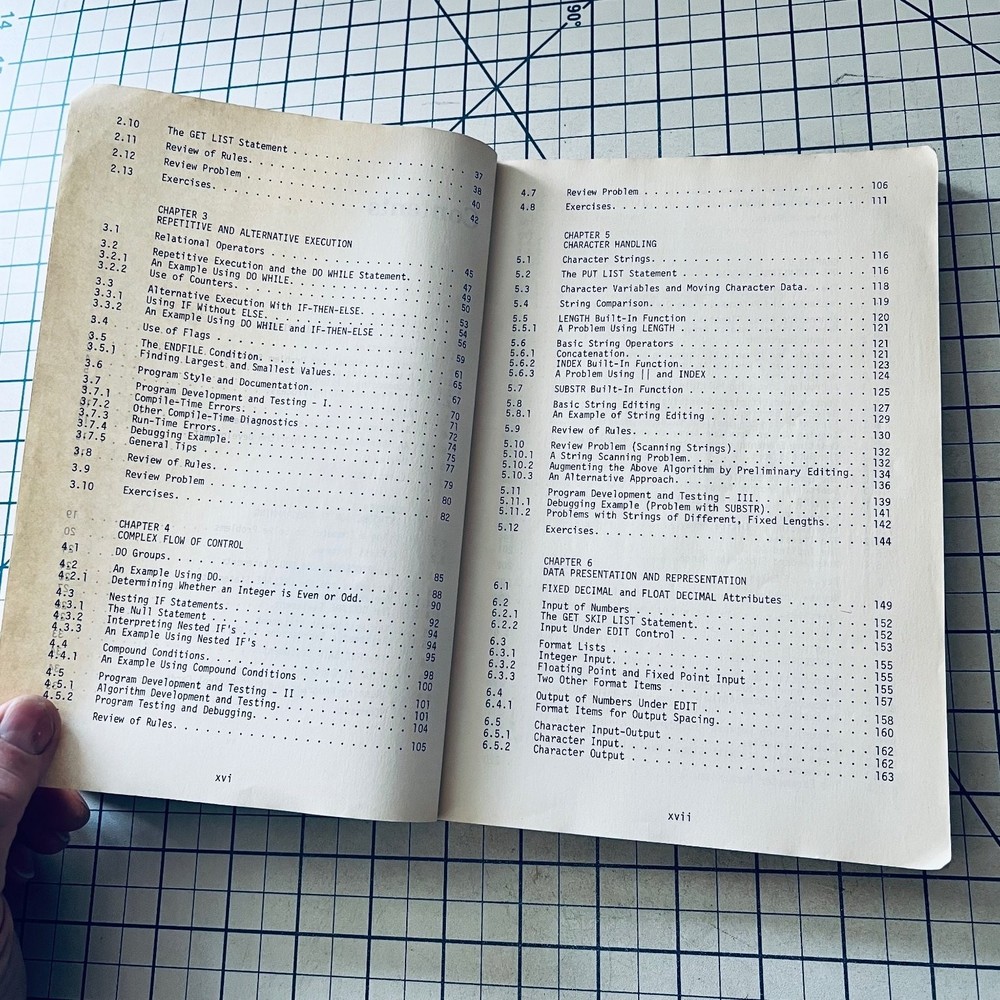 2.10 The GET LIST Statement . . . . . . . . . . . . . . . 37
2.11 Review of Rules. . . . . . . . . . . . . . . . 38
2.12 Review Problem . . . . . . . . . . . . . . . . 40
2.13 Exercises. . . . . . . . . . . . . . . . . . . 42
CHAPTER 3
REPETITIVE AND ALTERNATIVE EXECUTION
3.1 Relational Operators . . . . . . . . . . . . . 45
3.2 Repetitive Execution and the DO WHILE Statement. . . . 47
3.2.1 An Example Using DO WHILE. . . . . . . . . . . 49
3.2.2 Use of Counters. . . . . . . . . . . . . . . . 50
3.3 Alternative Execution With IF-THEN-ELSE. . . . . . . 53
3.3.1 Using IF Without ELSE. . . . . . . . . . . . . 54
3.3.2 An Example Using DO WHILE and IF-THEN-ELSE . . . . . 56
3.4 Use of Flags . . . . . . . . . . . . . . . . . 59
3.5 The ENDFILE Condition. . . . . . . . . . . . . 61
3.5.1 Finding Largest and Smallest Values. . . . . . . . 65
3.6 Program Style and Documentation. . . . . . . . . 67
3.7 Program Development and Testing - I. . . . . . . . 70
3.7.1 Compile-Time Errors. . . . . . . . . . . . . . 71
3.7.2 Other Compile-Time Diagnostics . . . . . . . . . 72
3.7.3 Run-Time Errors. . . . . . . . . . . . . . . . 74
3.7.4 Debugging Example. . . . . . . . . . . . . . . 75
3.7.5 General Tips . . . . . . . . . . . . . . . . . 77
3.8 Review of Rules. . . . . . . . . . . . . . . . 79
3.9 Review Problem . . . . . . . . . . . . . . . . 80
3.10 Exercises. . . . . . . . . . . . . . . . . . . 82
CHAPTER 4
COMPLEX FLOW OF CONTROL
4.1 DO Groups. . . . . . . . . . . . . . . . . . . 85
4.2 An Example Using DO. . . . . . . . . . . . . . 88
4.2.1 Determining Whether an Integer is Even or Odd. . . . . 90
4.3 Nesting IF Statements. . . . . . . . . . . . . 92
4.3.1 The Null Statement . . . . . . . . . . . . . . 94
4.3.2 Interpreting Nested IF's . . . . . . . . . . . 94
4.3.3 An Example Using Nested IF's . . . . . . . . . . 95
4.4 Compound Conditions. . . . . . . . . . . . . . 98
4.4.1 An Example Using Compound Conditions . . . . . . . 100
4.5 Program Development and Testing - II . . . . . . . 101
4.5.1 Algorithm Development and Testing. . . . . . . . 101
4.5.2 Program Testing and Debugging. . . . . . . . . . 104
Review of Rules. . . . . . . . . . . . . . . . 105
xvi
4.7 Review Problem . . . . . . . . . . . . . . . . 106
4.8 Exercises. . . . . . . . . . . . . . . . . . . 111
CHAPTER 5
CHARACTER HANDLING
5.1 Character Strings. . . . . . . . . . . . . . . 116
5.2 The PUT LIST Statement . . . . . . . . . . . . 116
5.3 Character Variables and Moving Character Data. . . . . 118
5.4 String Comparison. . . . . . . . . . . . . . . 119
5.5 LENGTH Built-In Function . . . . . . . . . . . 120
5.5.1 A Problem Using LENGTH . . . . . . . . . . . . 121
5.6 Basic String Operators . . . . . . . . . . . . 121
5.6.1 Concatenation. . . . . . . . . . . . . . . . . 121
5.6.2 INDEX Built-In Function. . . . . . . . . . . . 123
5.6.3 A Problem Using || and INDEX . . . . . . . . . . 124
5.7 SUBSTR Built-In Function . . . . . . . . . . . 125
5.8 Basic String Editing . . . . . . . . . . . . . 127
5.8.1 An Example of String Editing . . . . . . . . . . 129
5.9 Review of Rules. . . . . . . . . . . . . . . . 130
5.10 Review Problem (Scanning Strings). . . . . . . . . 132
5.10.1 A String Scanning Problem. . . . . . . . . . . 132
5.10.2 Augmenting the Above Algorithm by Preliminary Editing. . 134
5.10.3 An Alternative Approach. . . . . . . . . . . . 136
5.11 Program Development and Testing - III. . . . . . . . 139
5.11.1 Debugging Example (Problem with SUBSTR). . . . . . . 141
5.11.2 Problems with Strings of Different, Fixed Lengths. . . . 142
5.12 Exercises. . . . . . . . . . . . . . . . . . . 144
CHAPTER 6
DATA PRESENTATION AND REPRESENTATION
6.1 FIXED DECIMAL and FLOAT DECIMAL Attributes . . . . . . 149
6.2 Input of Numbers . . . . . . . . . . . . . . . 152
6.2.1 The GET SKIP LIST Statement. . . . . . . . . . . 152
6.2.2 Input Under EDIT Control . . . . . . . . . . . 153
6.3 Format Lists . . . . . . . . . . . . . . . . . 155
6.3.1 Integer Input. . . . . . . . . . . . . . . . . 155
6.3.2 Floating Point and Fixed Point Input . . . . . . . 155
6.3.3 Two Other Format Items . . . . . . . . . . . . 157
6.4 Output of Numbers Under EDIT . . . . . . . . . . 158
6.4.1 Format Items for Output Spacing. . . . . . . . . 160
6.5 Character Input-Output . . . . . . . . . . . . 162
6.5.1 Character Input. . . . . . . . . . . . . . . . 162
6.5.2 Character Output . . . . . . . . . . . . . . . 163
xvii
90°
14